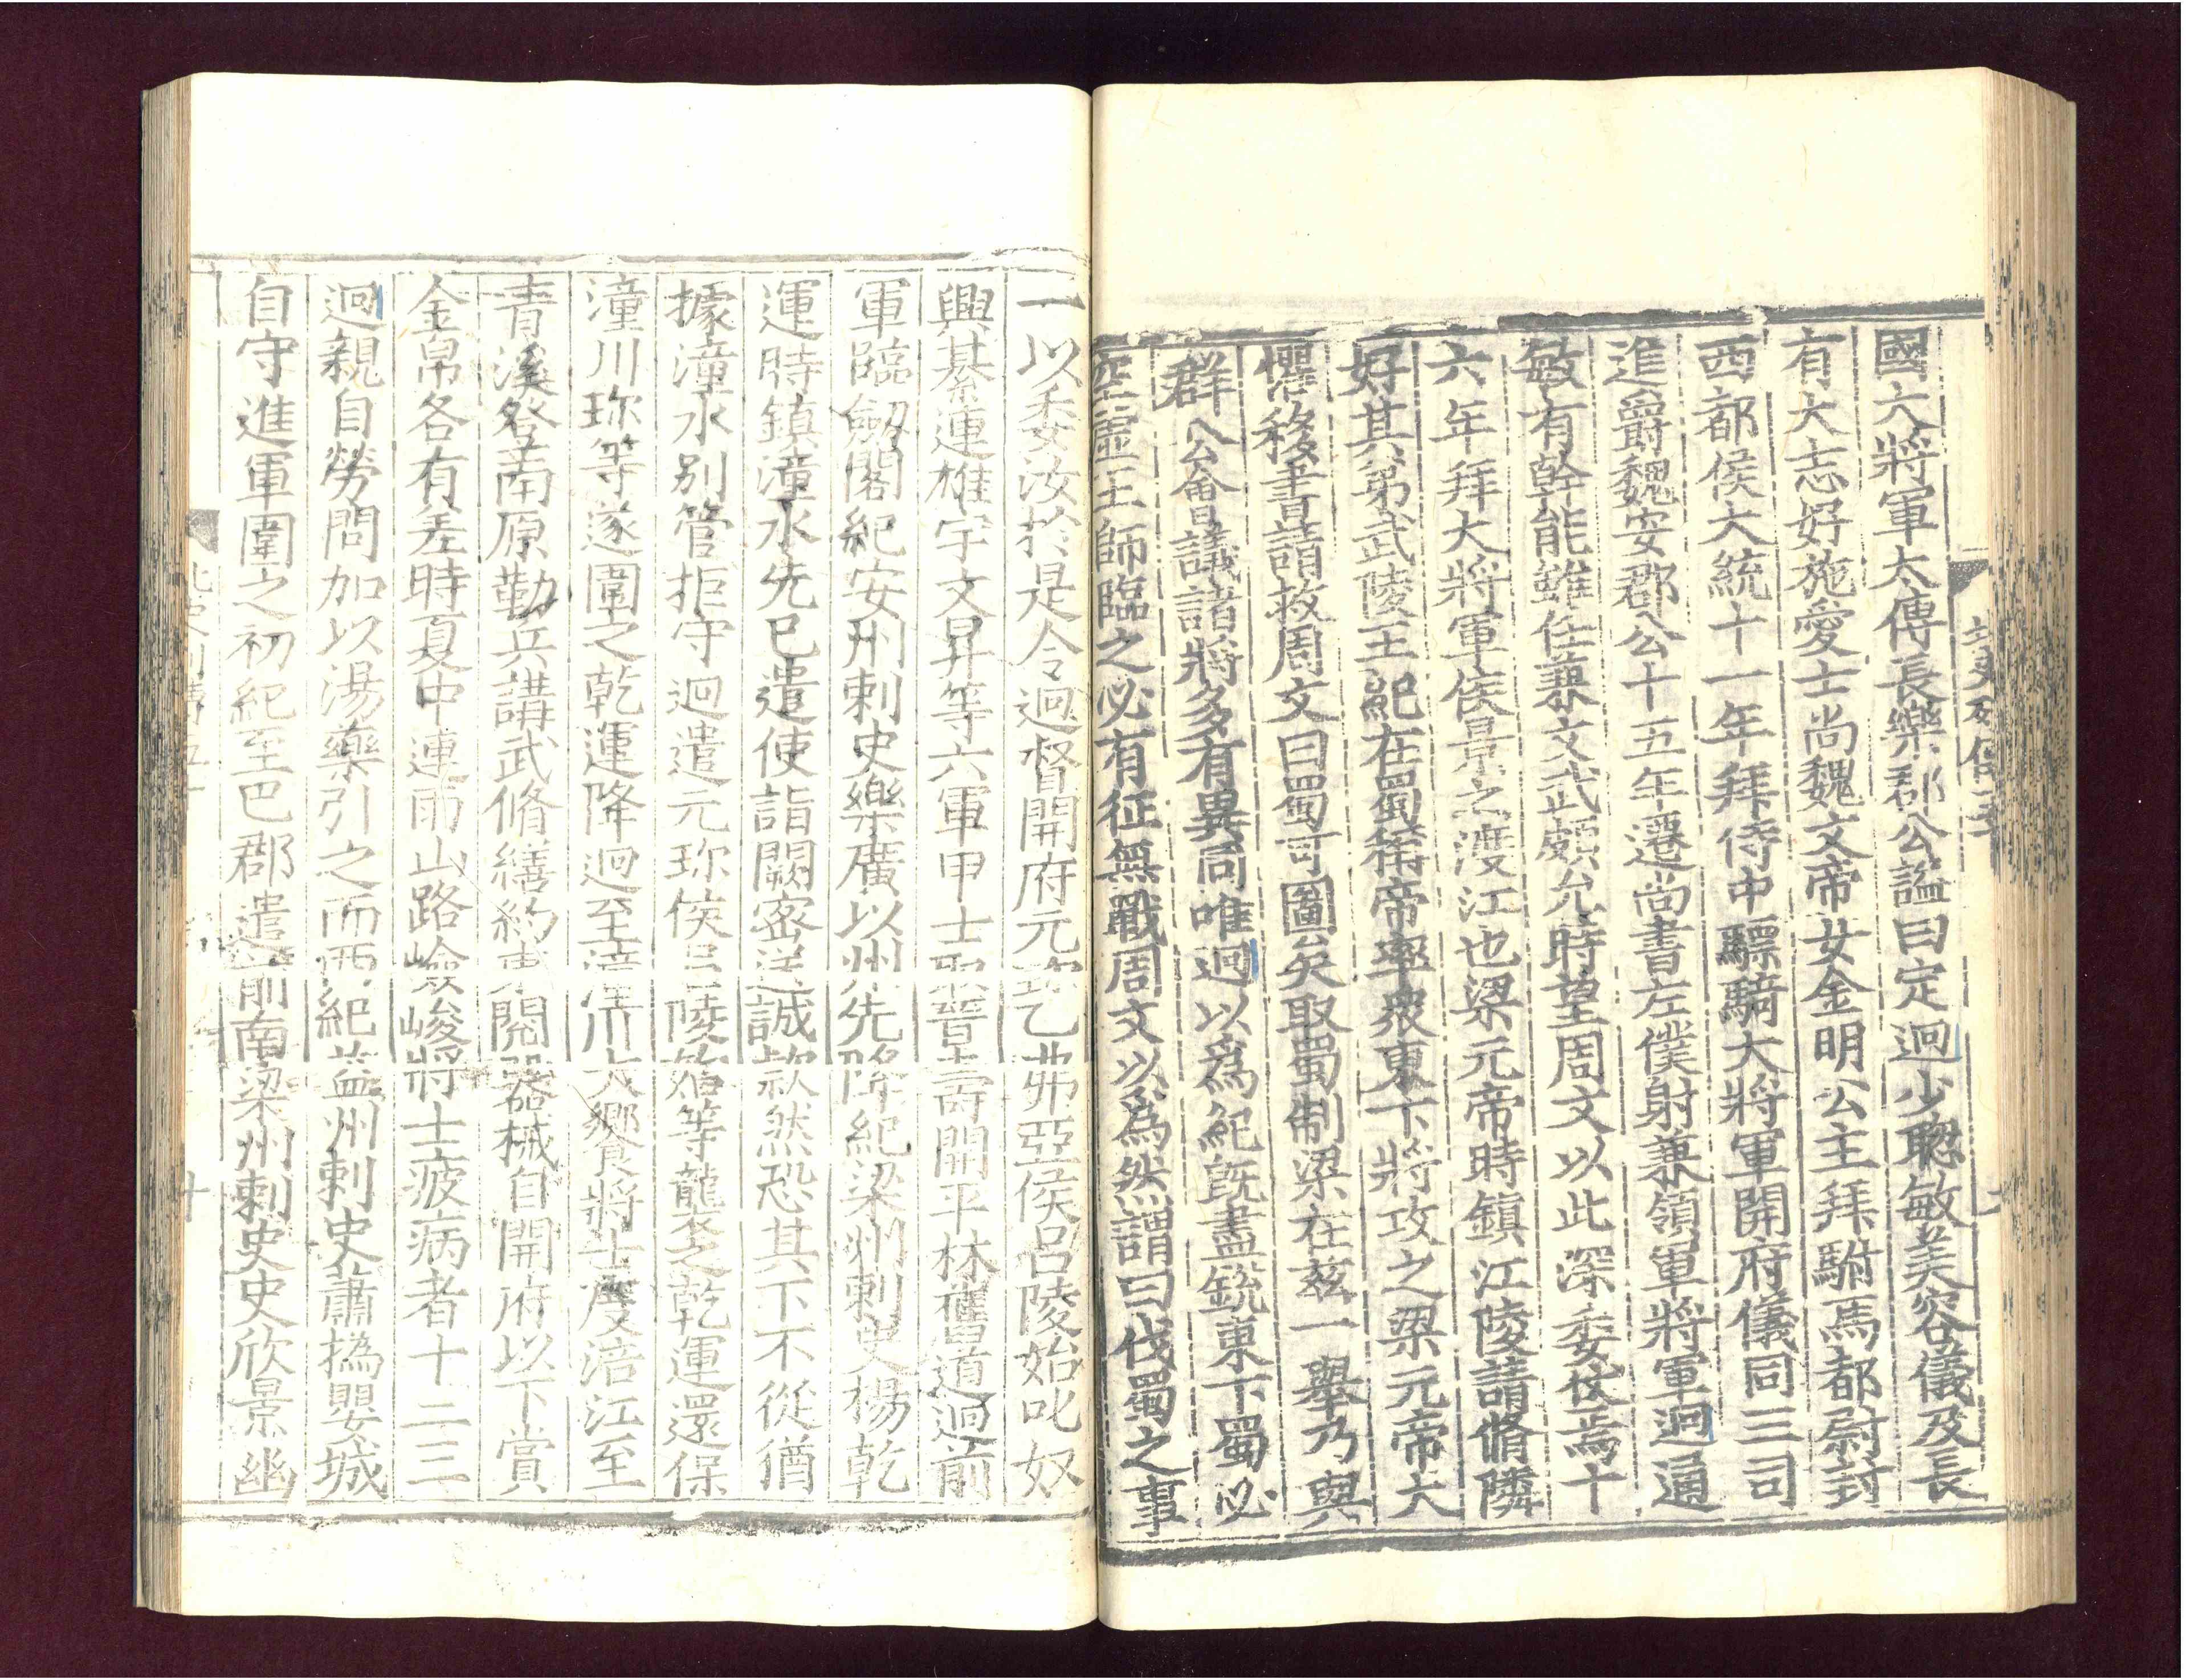 國大將軍太傅長樂郡公謚曰定迥少聦敏美容儀及長
有大志好施愛士尚魏文帝女金明公主拜駙馬都尉封
西都侯大統十一年拜侍中驃騎大將軍開府儀同三司
進爵魏安郡公十五年遷尚書左僕射兼領軍將軍迥通
敏有幹能雖任兼文武頗允時望周文以此深委仗焉十
六年拜大將軍侯景之渡江也梁元帝時鎮江陵請脩隣
好其弟武陵王紀在蜀稱帝率衆東下將攻之梁元帝大
懼移書請救周文曰蜀可圖矣取蜀制梁在兹一舉乃與
群公會議諸將多有異同唯迥以爲紀旣盡銳東下蜀必
空虛王師臨之必有征無戰周文以爲然謂曰伐蜀之事
一以委汝於是令迥督開府元珎乙弗亞侯吕陵始叱奴
興綦連雄宇文昇等六軍甲士取晉壽開平林舊道迥前
軍臨劒閣紀安州刺史樂廣以州先降紀梁州刺史楊乾
運時鎮潼水先已遣使詣闕密送誠欵然恐其下不從猶
據潼水別管拒守迥遣元珎侯吕陵始等襲之乾運還保
潼川珎等遂圍之乾運降迥至潼川大饗將士度涪江至
青溪登南原勒兵講武脩繕約束閱器械自開府以下賞
金帛各有差時夏中連雨山路嶮峻將士疲病者十二三
迥親自勞問加以湯藥引之而西紀益州刺史蕭撝嬰城
自守進軍圍之初紀至巴郡遣前南梁州刺史史欣景幽